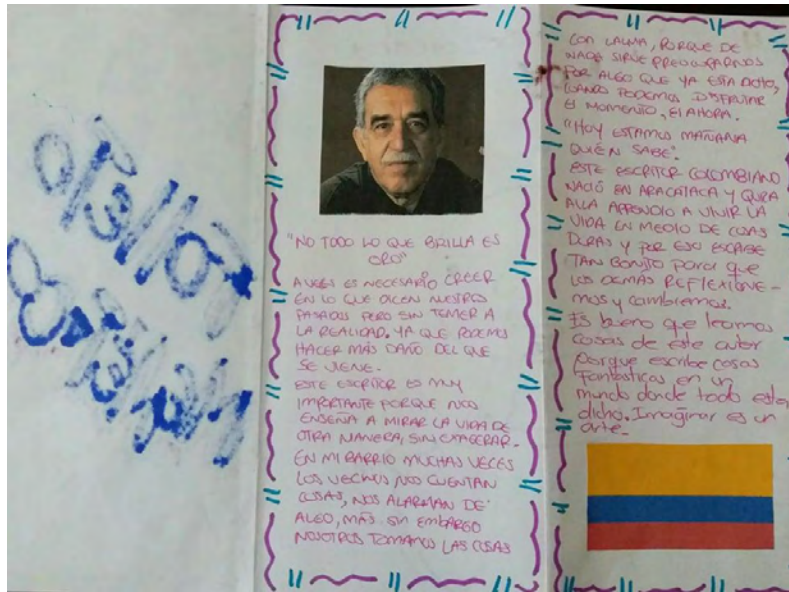 "NO TODO LO QUE BRILLA ES
ORO"
A VECES ES NECESARIO CREER
EN LO QUE DICEN NUESTROS
PASADOS PERO SIN TEMER A
LA REALIDAD. YA QUE PODEMOS
HACER MÁS DAÑO DEL QUE
SE VIENE.
ESTE ESCRITOR ES MUY
IMPORTANTE PORQUE NOS
ENSEÑA A MIRAR LA VIDA DE
OTRA MANERA, SIN EXAGERAR.
EN MI BARRIO MUCHAS VECES
LOS VECINOS NOS CUENTAN
COSAS, NOS ALARMAN DE
ALGO, MÁS SIN EMBARGO
NOSOTROS TOMAMOS LAS COSAS
CON CALMA, PORQUE DE
NADA SIRVE PREOCUPARNOS
POR ALGO QUE YA ESTA DICHO,
CUANDO PODEMOS DISFRUTAR
EL MOMENTO, El AHORA.
"HOY ESTAMOS MAÑANA
QUIÉN SABE".
ESTE ESCRITOR COLOMBIANO
NACIÓ EN ARACATACA Y
ALLA APRENDIO A VIVIR LA
VIDA EN MEDIO DE COSAS
DURAS Y POR ESO ESCRIBE
TAN BONITO para que
LOS DEMÁS REFLEXIONE-
mos y cambiemos.
Es bueno que leamos
cosas de este autor
porque escribe cosas
Fantasticas en un
mundo donde todo esta
dicho. Imaginar es un
arte.